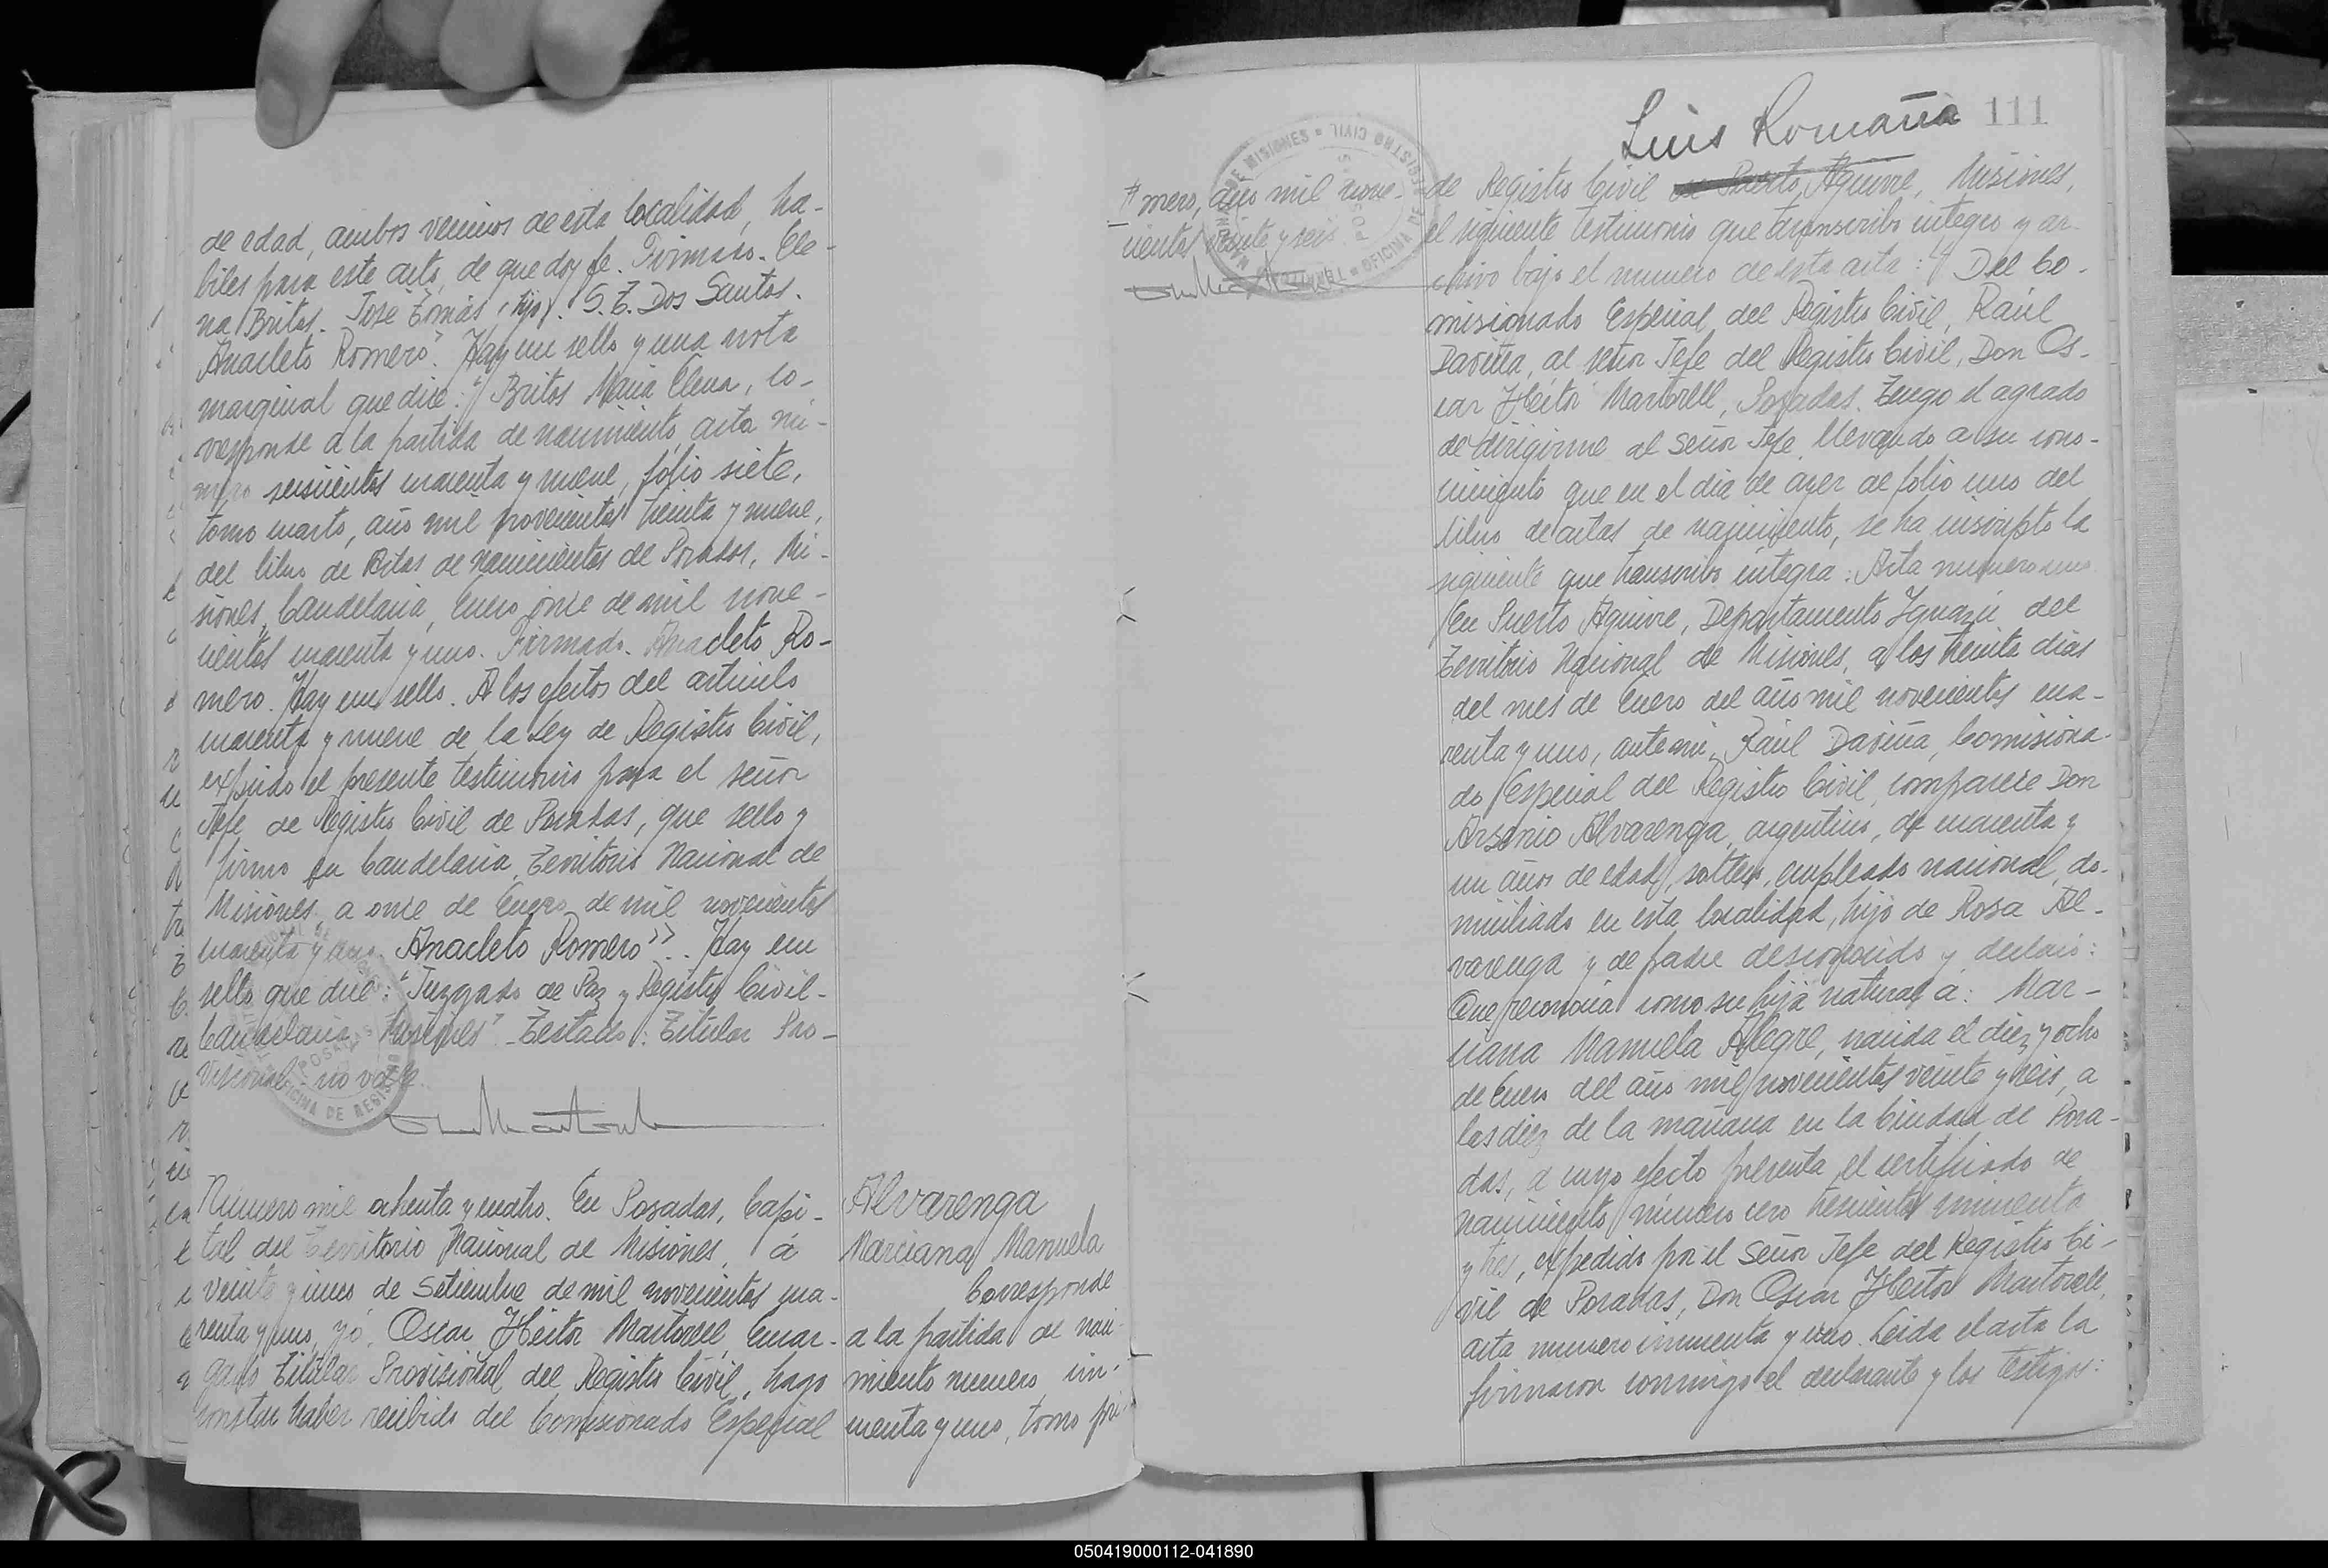 de edad, ambos vecinos de esta localidad, há-
biles para este acto, de que doy fe. Firmado. Ele-
na Britos. José Tomás (hijo). S. T. Dos Santos.
Anacleto Romero". Hay un sello y una nota
marginal que dice: "Britos María Elena, co-
rresponde a la partida de nacimiento, acta nú-
mero seiscientos cuarenta y nueve, folio siete,
tomo cuarto, año mil novecientos treinta y nueve,
del libro de Actas de nacimientos de Posadas, Mi-
siones, Candelaria, Enero once de mil nove-
cientos cuarenta y uno. Firmado. Anacleto Ro-
mero. Hay un sello. A los efectos del artículo
cuarenta y nueve de la Ley de Registro Civil,
expido el presente testimonio para el señor
Jefe de Registro Civil de Posadas, que sello y
firmo en Candelaria, Territorio Nacional de
Misiones, a once de Enero de mil novecientos
cuarenta y uno. Anacleto Romero". Hay un
sello que dice: "Juzgado de Paz y Registro Civil-
Candelaria Misiones" - Testado: Titular Pro-
visional: no vale.
Número mil ochenta y cuatro. En Posadas, Capi-
tal del Territorio Nacional de Misiones, á
veinte y uno de Setiembre de mil novecientos cua-
renta y uno, yó, Oscar Héctor Martorell, Encar-
gado Titular Provisional del Registro Civil, hago
constar haber recibido del Comisionado Especial
Alvarenga
Marciana Manuela
Corresponde
a la partida de naci-
miento numero cin-
cuenta y uno, tomo pri-
# mero, año mil nove-
cientos veinte y seis
MISIONES = REGISTRO CIVIL
OFICINA DE
Luis Romañá 111
de Registro Civil de Puerto Aguirre, Misiones,
el siguiente testimonio que transcribo integro y ar-
chivo bajo el numero de esta acta: "Del Co-
misionado Especial del Registro Civil, Raúl
Daviña, al señor Jefe del Registro Civil, Don Os-
car Héctor Martorell, Posadas. Tengo el agrado
de dirigirme al señor Jefe, llevando a su cono-
cimiento que en el dia de ayer al folio uno del
libro de actas de nacimiento, se ha inscripto la
siguiente que transcribo integra: Acta numero uno
En Puerto Aguirre, Departamento Iguazú del
Territorio Nacional de Misiones, a los treinta dias
del mes de Enero del año mil novecientos cua-
renta y uno, ante mi, Raúl Daviña, Comisiona-
do Especial del Registro Civil, comparece Don
Arsenio Alvarenga, argentino, de cuarenta y
un años de edad, soltero, empleado nacional, do-
miciliado en esta localidad, hijo de Rosa Al-
varenga y de padre desconocido y declaró:
Que reconocia como su hija natural a: Mar-
ciana Manuela Alegre, nacida el diez y ocho
de Enero del año mil novecientos veinte y seis, a
las diez de la mañana en la Ciudad de Posa-
das, a cuyo efecto presenta el certificado de
nacimiento número cero trescientos cincuenta
y tres, expedido por el Señor Jefe del Registro Ci-
vil de Posadas, Don Oscar Héctor Martorell,
acta numero cincuenta y uno. Leida el acta la
firmaron conmigo el declarante y los testigos:
050419000112-041890